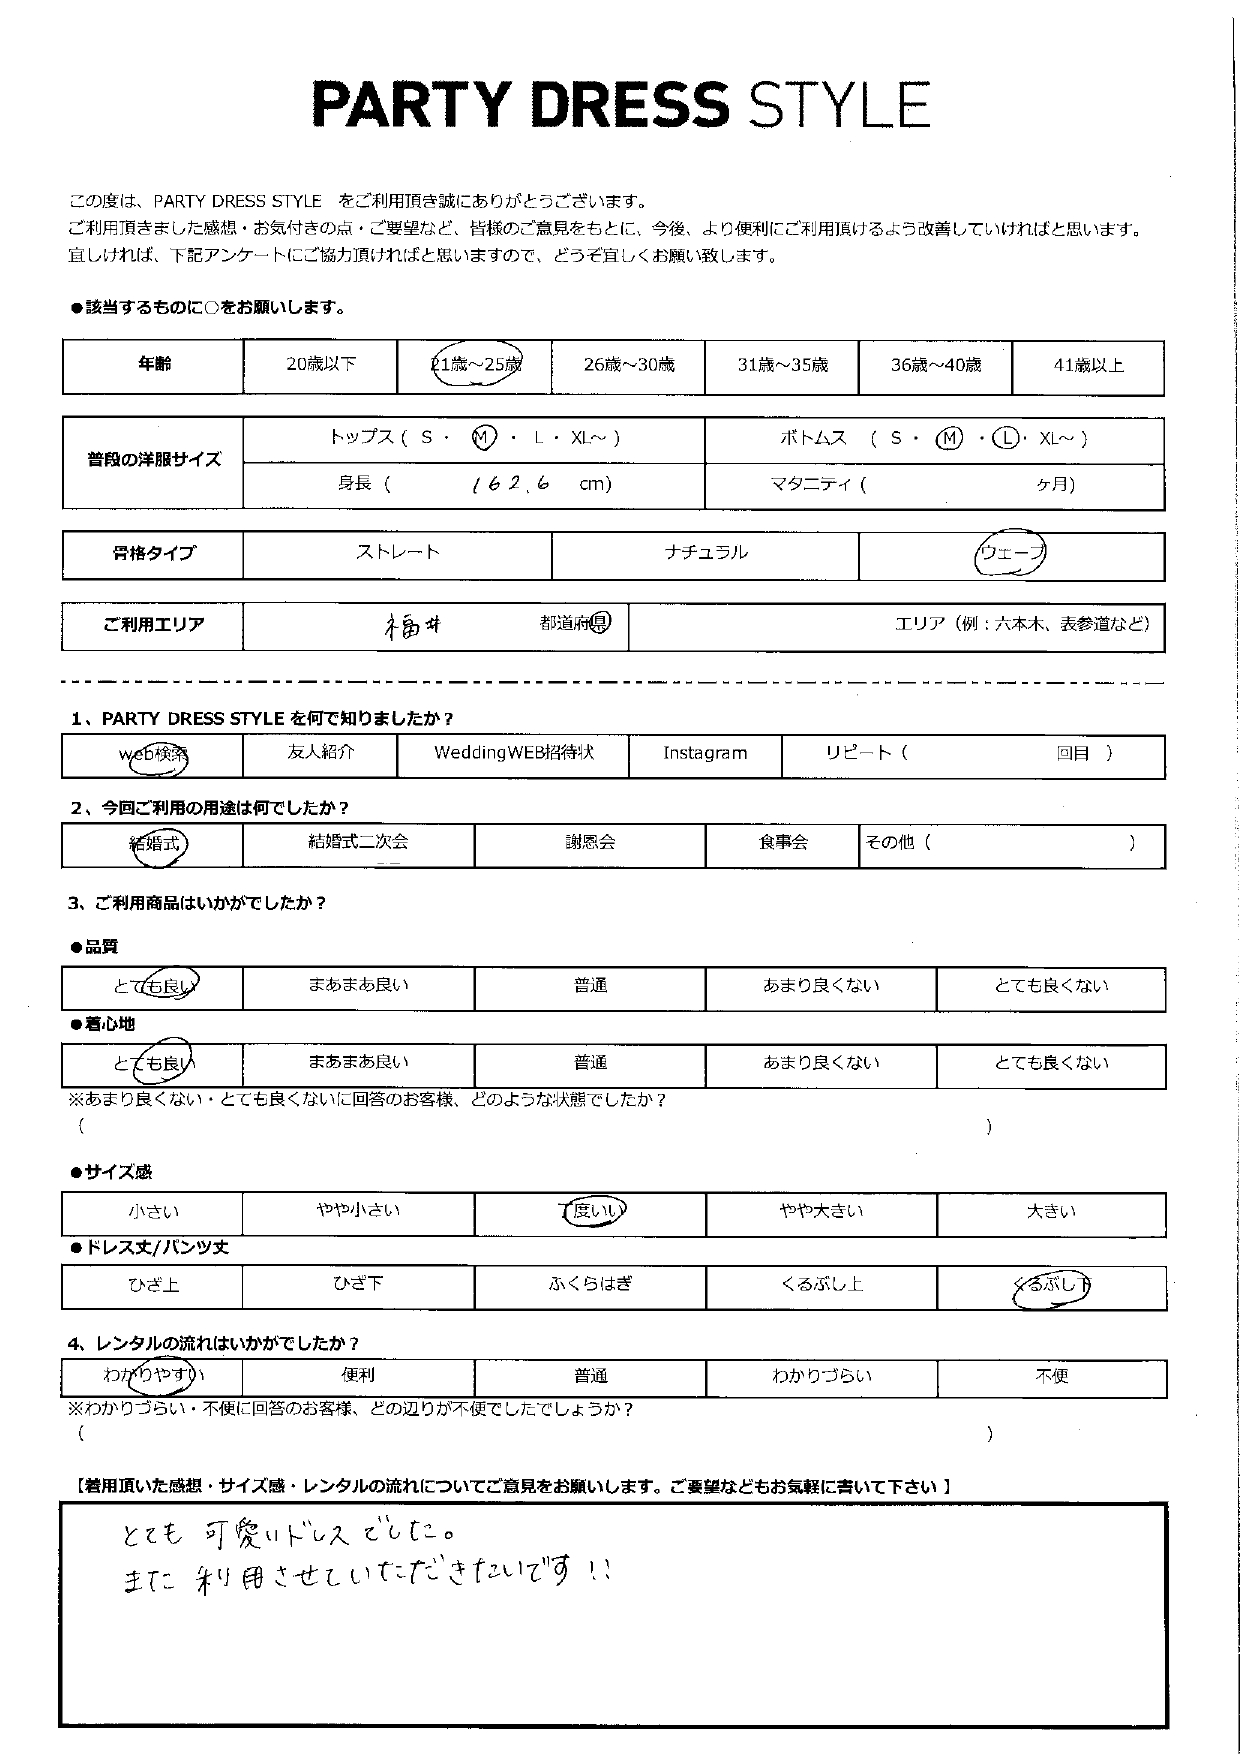 PARTY DRESS STYLE
この度は、PARTY DRESS STYLE をご利用頂き誠にありがとうございます。
ご利用頂きました感想・お気付きの点・ご要望など、皆様のご意見をもとに、今後、より便利にご利用頂けるよう改善していければと思います。
宜しければ、下記アンケートにご協力頂ければと思いますので、どうぞ宜しくお願い致します。
●該当するものに○をお願いします。
年齢 20歳以下 21歳～25歳 26歳～30歳 31歳～35歳 36歳～40歳 41歳以上
普段の洋服サイズ
トップス ( S ・ M ・ L ・ XL～ ) ボトムス ( S ・ M ・ L ・ XL～ )
身長 ( 162.6 cm) マタニティ ( ヶ月)
骨格タイプ ストレート ナチュラル ウェーブ
ご利用エリア 福井 都道府県 エリア（例：六本木、表参道など）
1、PARTY DRESS STYLE を何で知りましたか？
web検索 友人紹介 WeddingWEB招待状 Instagram リピート ( 回目 )
2、今回ご利用の用途は何でしたか？
結婚式 結婚式二次会 謝恩会 食事会 その他 ( )
3、ご利用商品はいかがでしたか？
●品質
とても良い まあまあ良い 普通 あまり良くない とても良くない
●着心地
とても良い まあまあ良い 普通 あまり良くない とても良くない
※あまり良くない・とても良くないに回答のお客様、どのような状態でしたか？
( )
●サイズ感
小さい やや小さい 丁度いい やや大きい 大きい
●ドレス丈/パンツ丈
ひざ上 ひざ下 ふくらはぎ くるぶし上 くるぶし下
4、レンタルの流れはいかがでしたか？
わかりやすい 便利 普通 わかりづらい 不便
※わかりづらい・不便に回答のお客様、どの辺りが不便でしたでしょうか？
( )
【着用頂いた感想・サイズ感・レンタルの流れについてご意見をお願いします。ご要望などもお気軽に書いて下さい 】
とても 可愛いドレス でした。
また 利用させていただきたいです !!